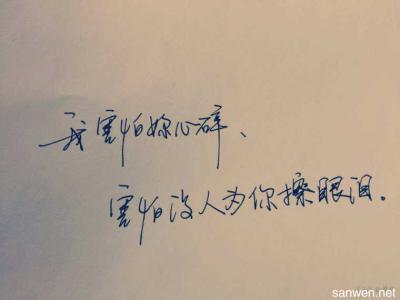 我害怕妳心碎、
害怕没人为你擦眼泪.
sanwen.net